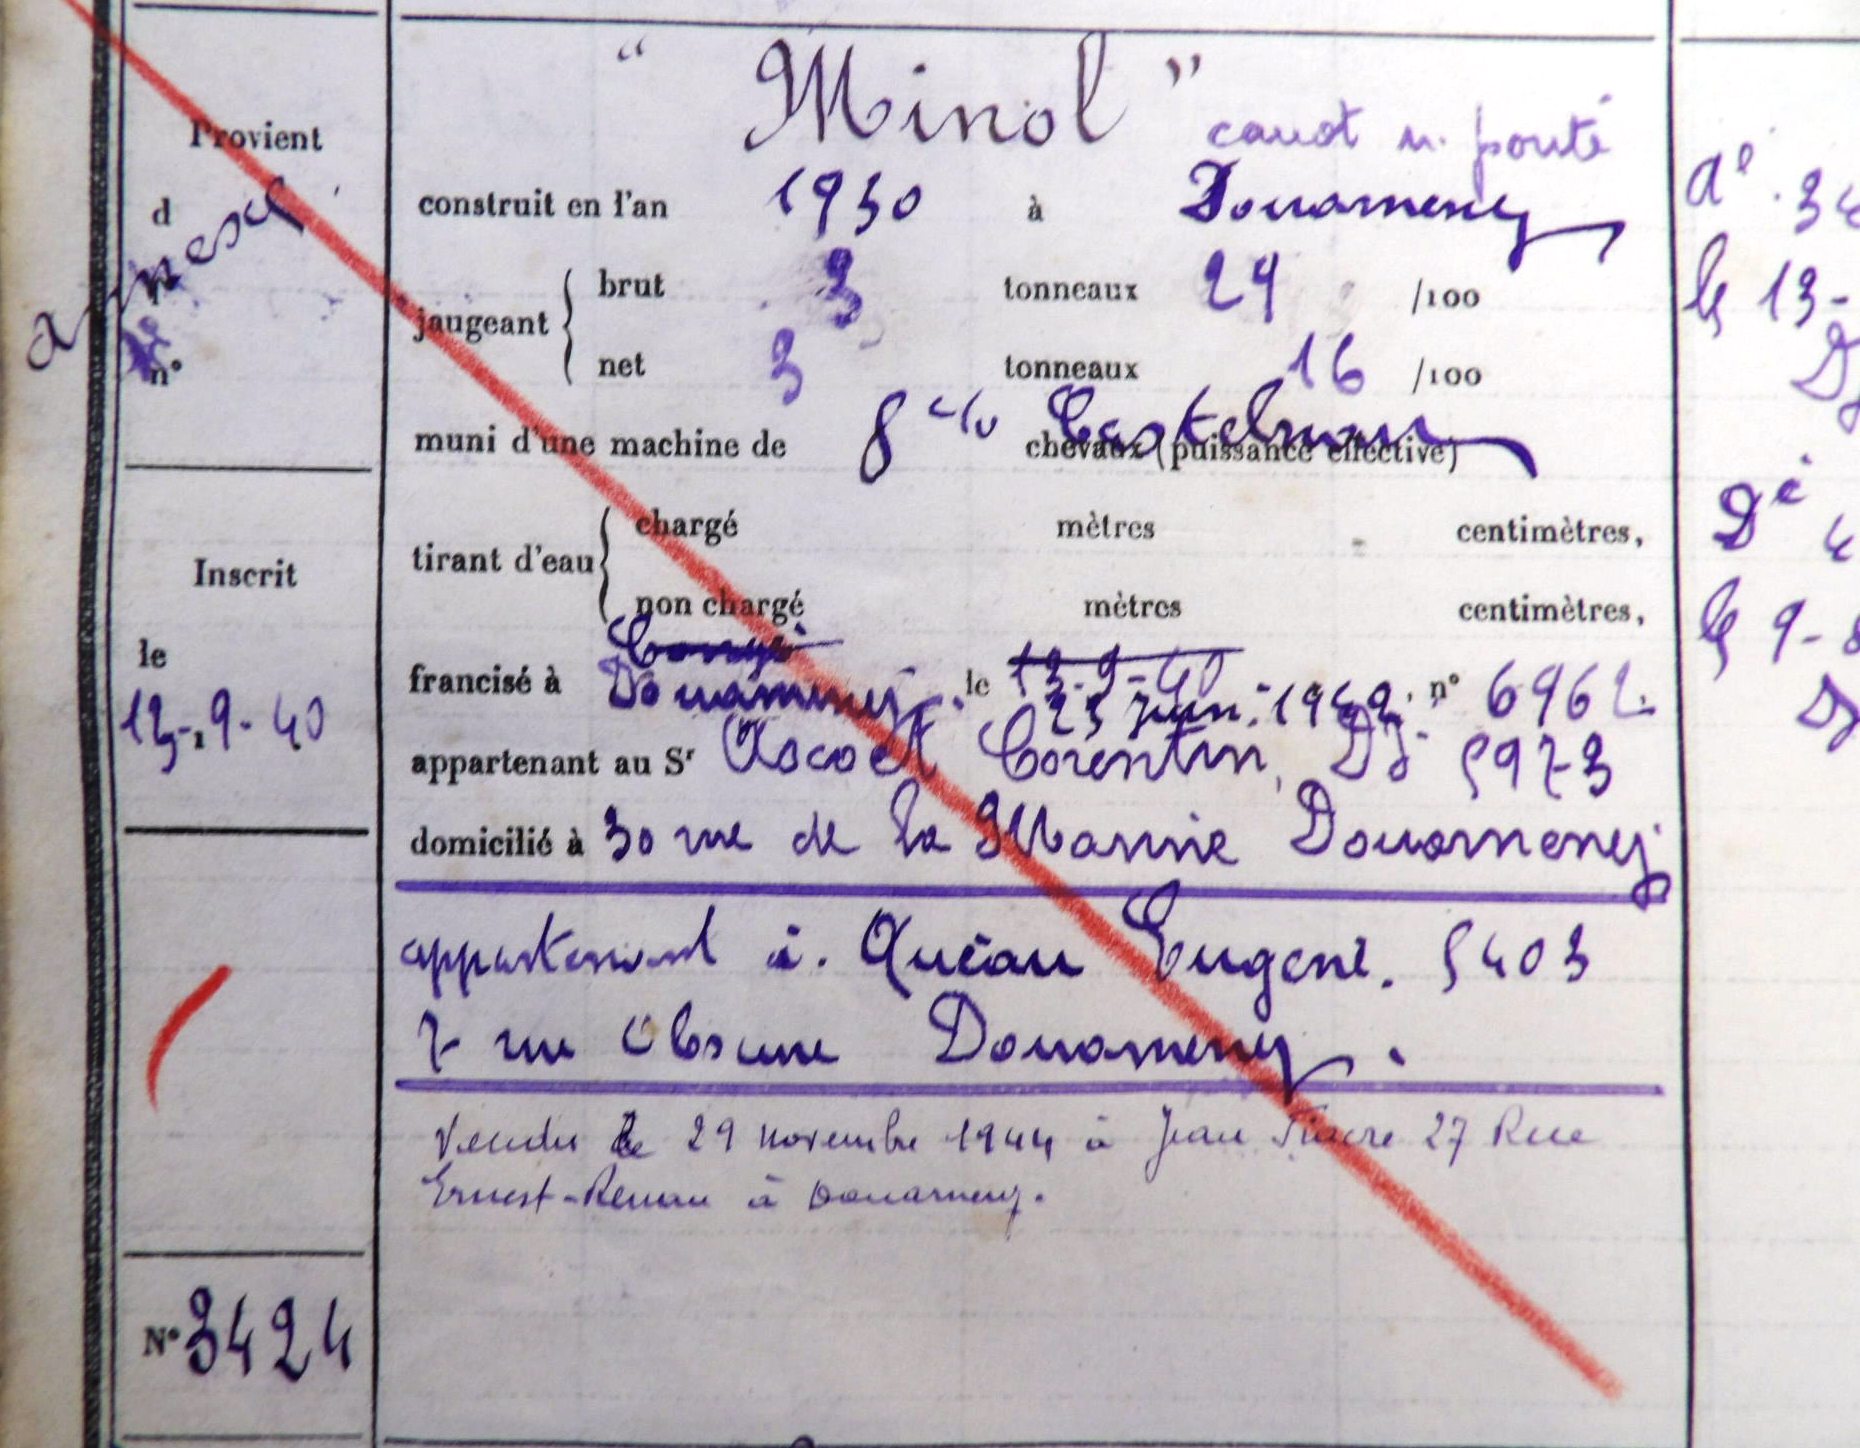 " Minol " canot n. ponté
Provient
d
n°
construit en l'an 1930 à Douarnenez
jaugeant brut 3 tonneaux 24 /100
net 3 tonneaux 16 /100
muni d'une machine de 8 chevaux (puissance effective)
tirant d'eau chargé mètres centimètres,
non chargé mètres centimètres,
Inscrit
le
13-9-40
francisé à Douarnenez le 13-9-40 n° 6962
23 juin 1942
appartenant au Sr Ascoët Corentin, DZ 5973
domicilié à 30 rue de la Marine Douarnenez
appartenant à Quéau Eugène. 5403
7 rue Obscure Douarnenez.
Vendu le 29 novembre 1944 à Jean 27 Rue
Ernest-Renan à Douarnenez.
N° 3424